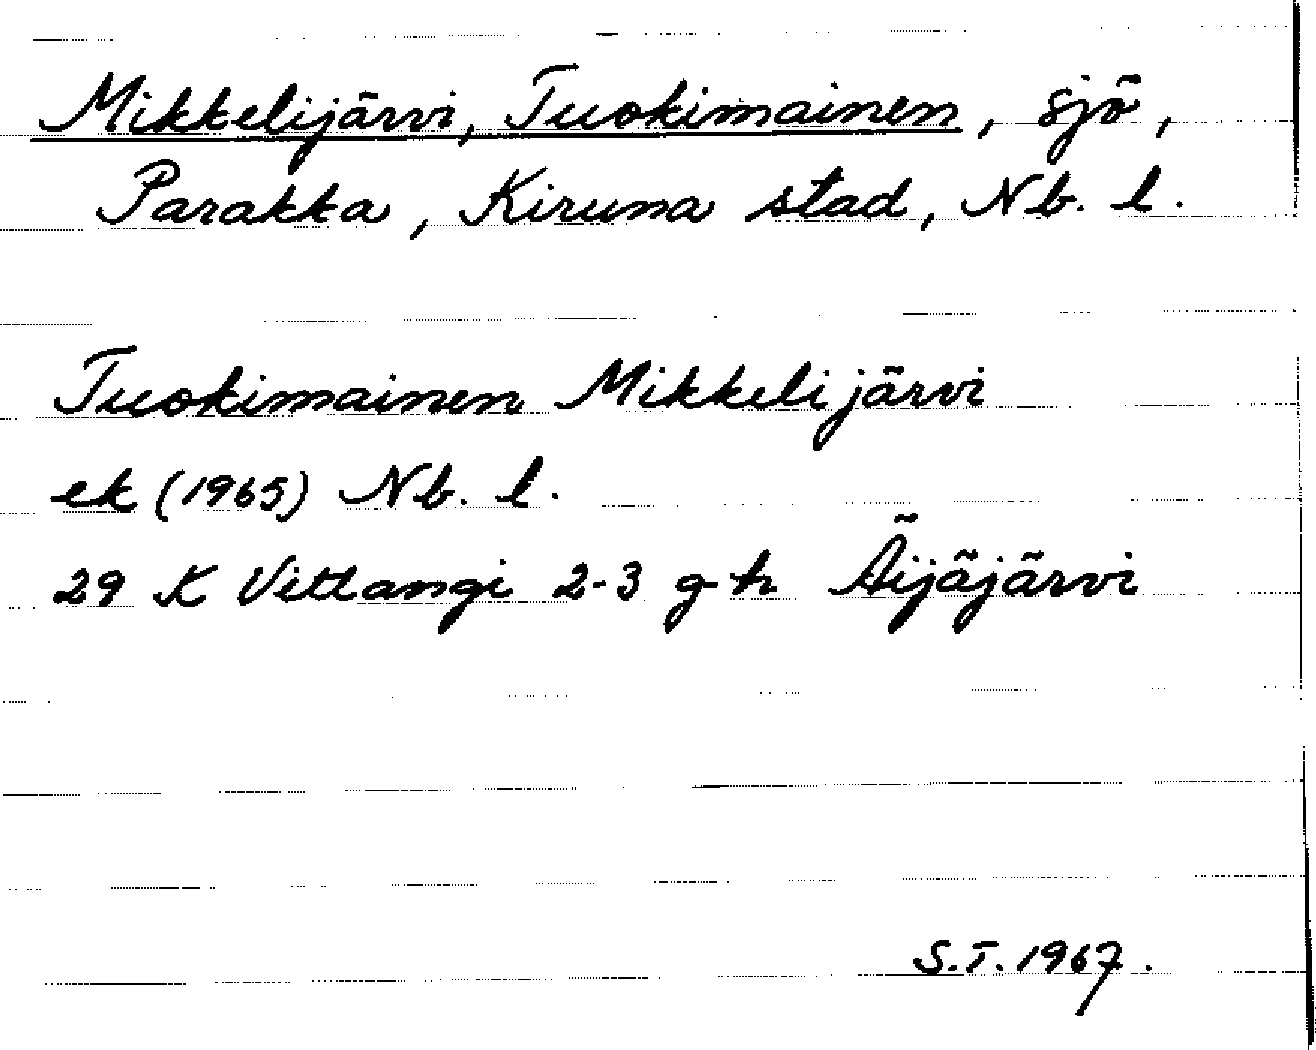 Mikkelijärvi, Tuokimainen, sjö,
Parakka, Kiruna stad, Nb. l.
Tuokimainen Mikkelijärvi
ek (1965) Nb. l.
29 K Vittangi 2-3 g-h Äijäjärvi
S.T. 1967.